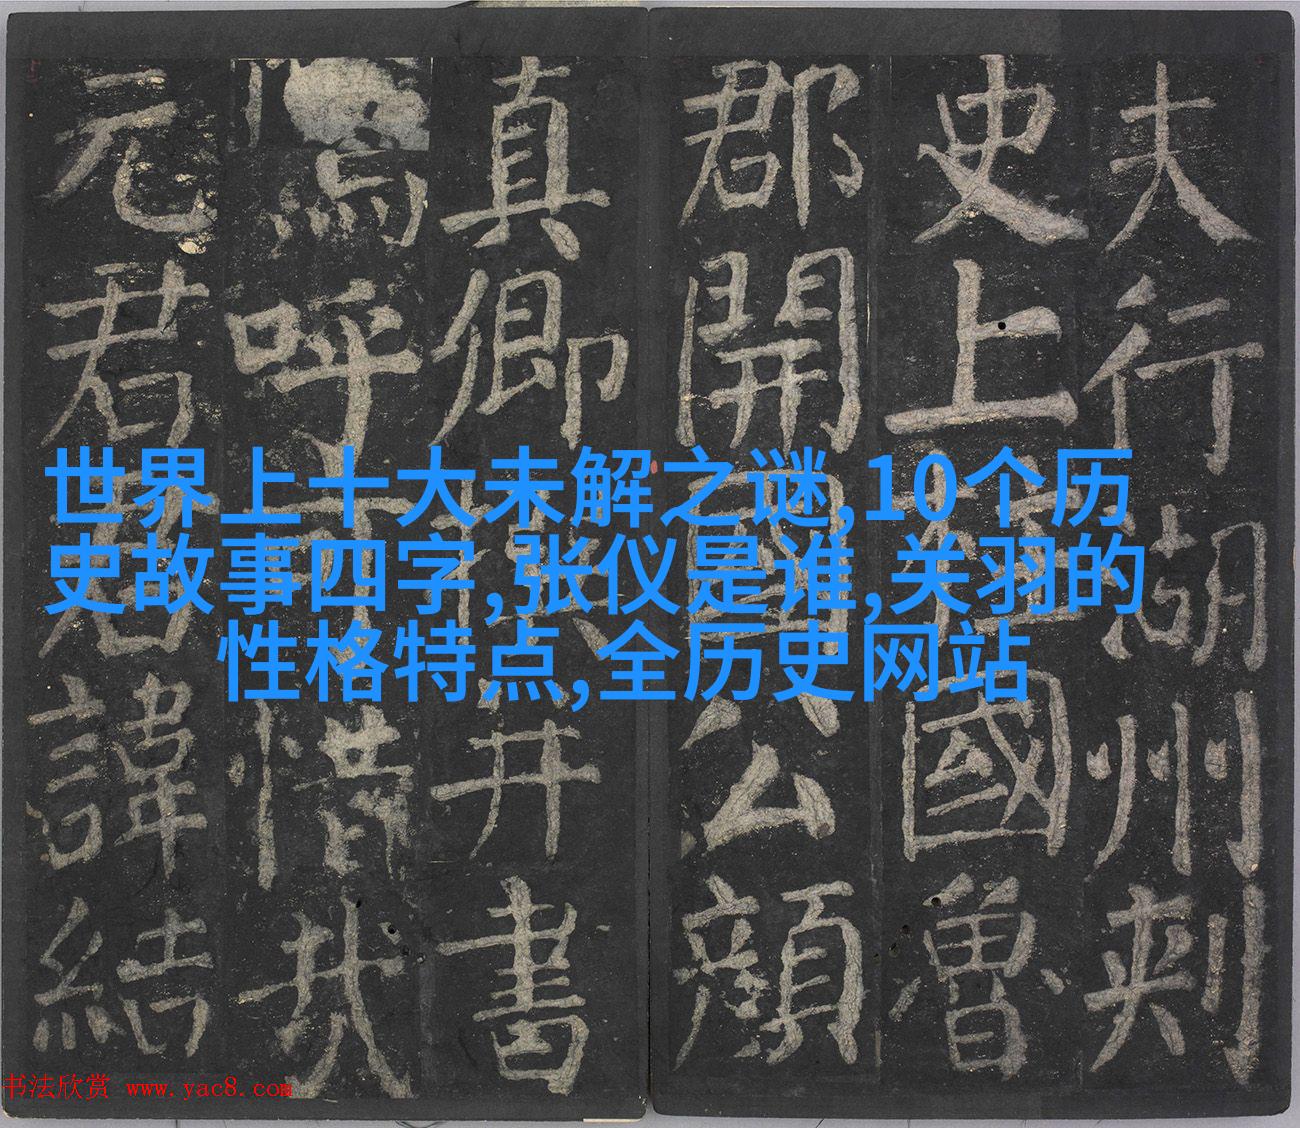 夫行湖州刺
史上柱國魯
郡開國公顔
真卿撰并書
呼惜哉
元君君諱結
世界上十大未解之谜,10个历
史故事四字,张仪是谁,关羽的
性格特点,全历史网站
书法欣赏 www.yac8.com